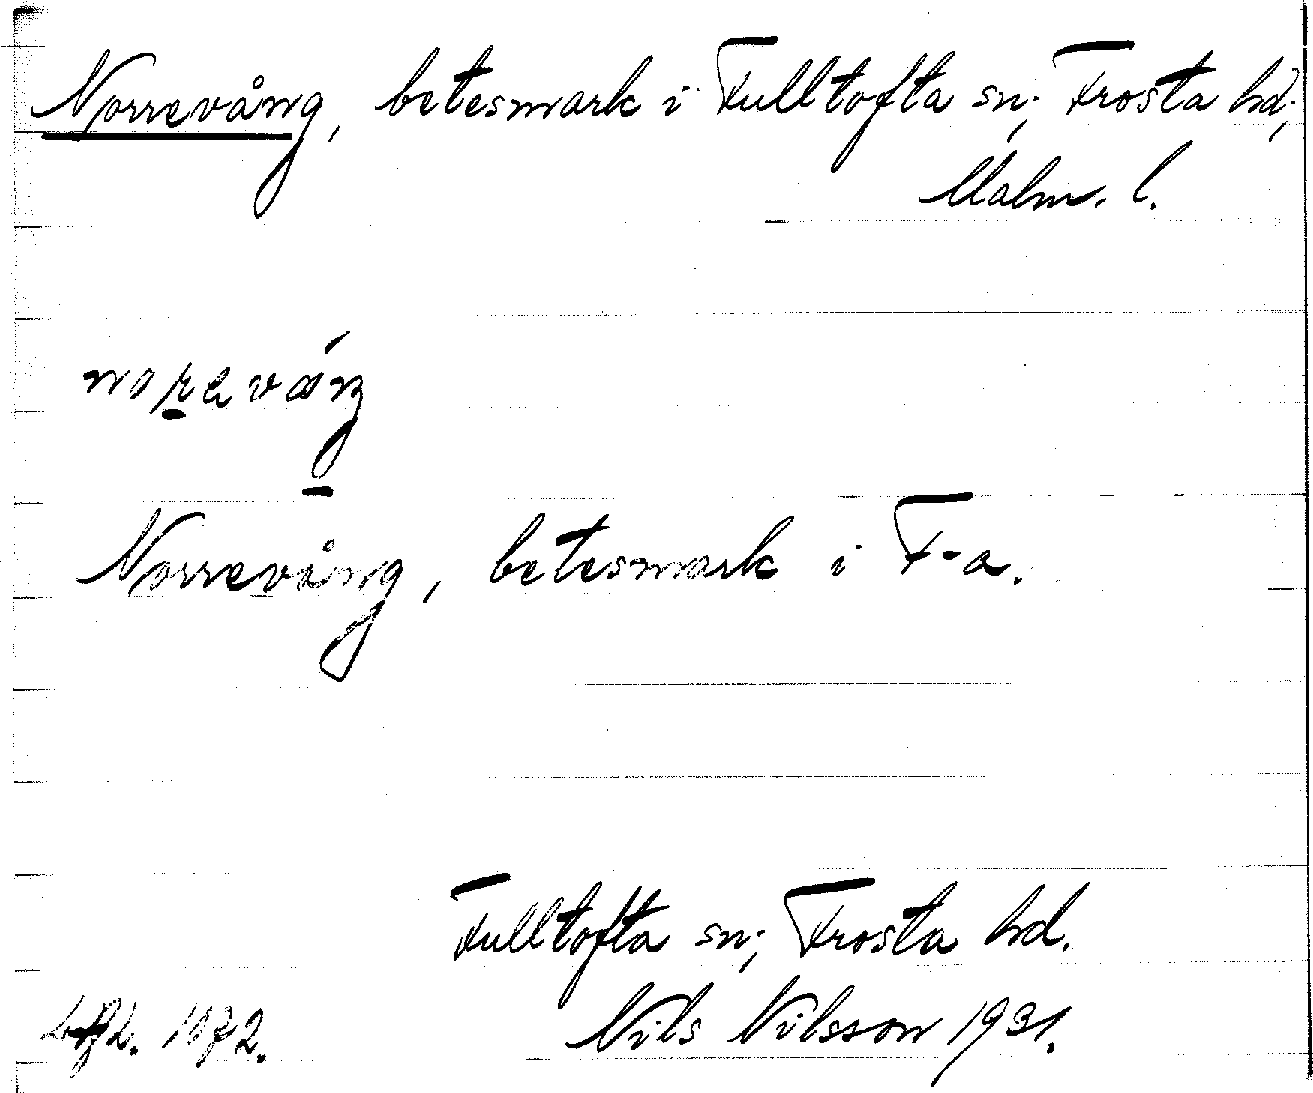 Norrevång, betesmark i Fulltofta sn; Frosta hd;
Malm. l.
Norrevång, betesmark i F-a.
Fulltofta sn; Frosta hd.
Nils Nilsson 1931.